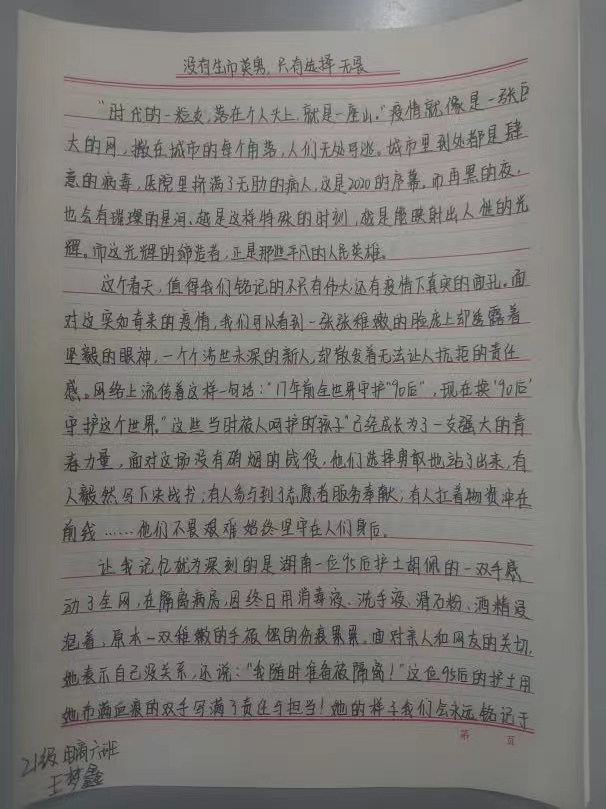 没有生而英勇，只有选择无畏
"时代的一粒灰，落在个人头上，就是一座山。"疫情就像是一张巨
大的网，撒在城市的每个角落，人们无处可逃。城市里到处都是肆
意的病毒，医院里挤满了无助的病人，这是2020的序幕。而再黑的夜，
也会有璀璨的星河，越是这样特殊的时刻，越是能映射出人性的光
辉。而这光辉的缔造者，正是那些平凡的人民英雄。
这个春天，值得我们铭记的不只有伟大，还有疫情下真实的面孔。面
对这突如奇来的疫情，我们可以看到一张张稚嫩的脸庞上却透露着
坚毅的眼神，一个个涉世未深的新人，却散发着无法让人抗拒的责任
感。网络上流传着这样一句话："17年前全世界守护"90后"，现在换"90后"
守护这个世界。"这些当时被人呵护的"孩子"已经成长为了一支强大的青
春力量，面对这场没有硝烟的战役，他们选择勇敢地站了出来，有
人毅然写下决战书；有人参与到了志愿者服务奉献；有人扛着物资冲在
前线……他们不畏艰难始终坚守在人们身后。
让我记忆就为深刻的是湖南一位95后护士胡佩的一双手感
动了全网，在隔离病房，因终日用消毒液、洗手液、滑石粉、酒精浸
泡着，原本一双稚嫩的手被蚀的伤痕累累。面对亲人和网友的关切，
她表示自己没关系，还说："我随时准备被隔离！"这位95后的护士用
她布满血痕的双手写满了责任与担当！她的样子我们会永远铭记于
第 页
21级电商六班
王梦鑫